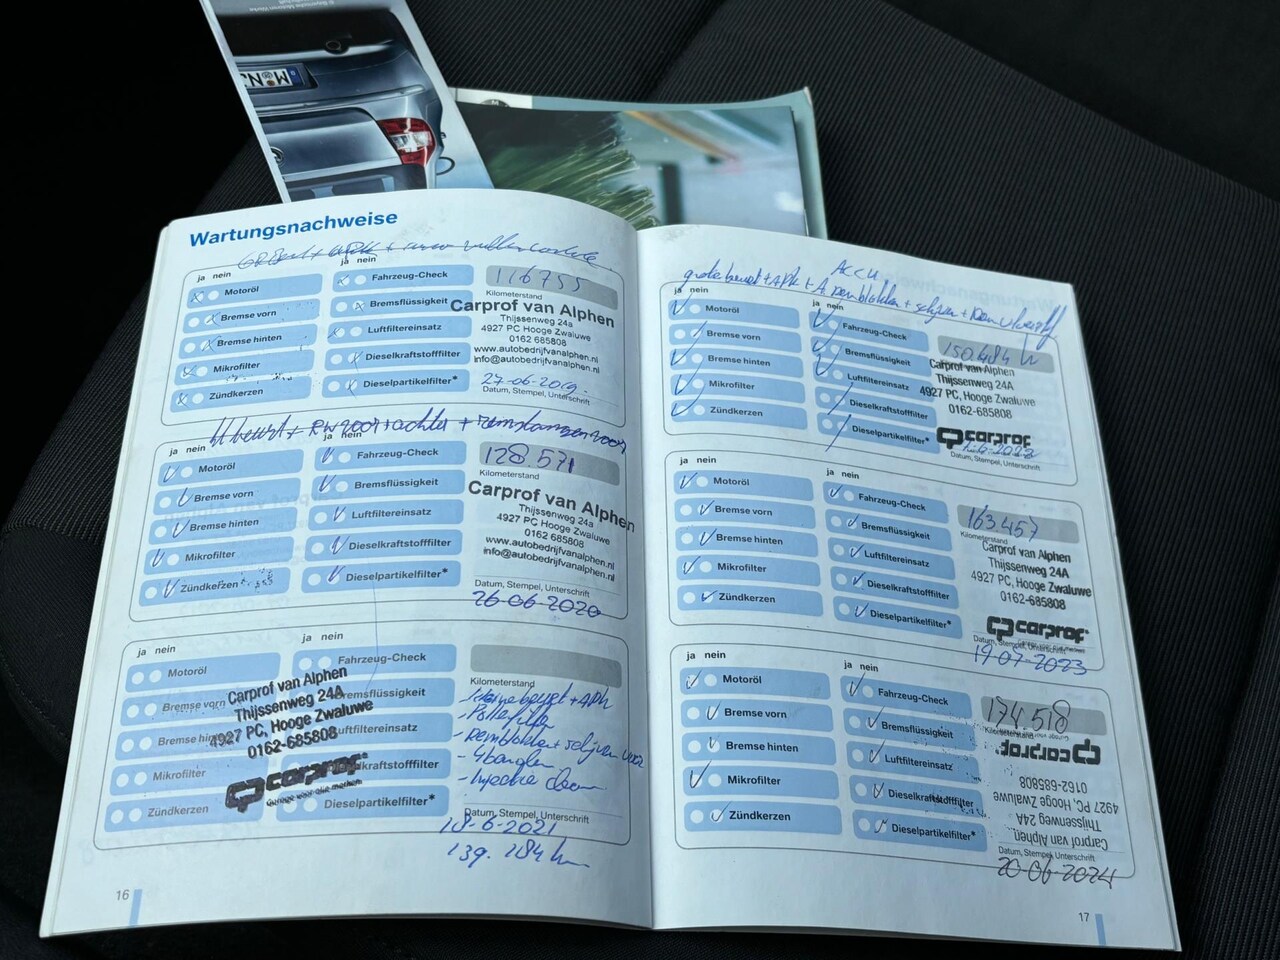 Wartungsnachweise
ja nein
ja nein
Motoröl
Bremse vorn
Bremse hinten
Mikrofilter
Zündkerzen
Fahrzeug-Check
Bremsflüssigkeit
Luftfiltereinsatz
Dieselkraftstofffilter
Dieselpartikelfilter*
116755
Kilometerstand
Carprof van Alphen
Thijssenweg 24a
4927 PC Hooge Zwaluwe
0162 685808
www.autobedrijfvanalphen.nl
info@autobedrijfvanalphen.nl
27-06-2019
Datum, Stempel, Unterschrift
ja nein
ja nein
Motoröl
Bremse vorn
Bremse hinten
Mikrofilter
Zündkerzen
Fahrzeug-Check
Bremsflüssigkeit
Luftfiltereinsatz
Dieselkraftstofffilter
Dieselpartikelfilter*
128.571
Kilometerstand
Carprof van Alphen
Thijssenweg 24a
4927 PC Hooge Zwaluwe
0162 685808
www.autobedrijfvanalphen.nl
info@autobedrijfvanalphen.nl
Datum, Stempel, Unterschrift
26-06-2020
ja nein
ja nein
Motoröl
Bremse vorn
Mikrofilter
Zündkerzen
Fahrzeug-Check
Bremsflüssigkeit
Luftfiltereinsatz
Dieselpartikelfilter*
Carprof van Alphen
Thijssenweg 24A
4927 PC, Hooge Zwaluwe
0162-685808
carprof
Garage voor alle merken
Kilometerstand
Datum, Stempel, Unterschrift
18-6-2021
139.184 km
16
ACCU
ja nein
ja nein
Motoröl
Bremse vorn
Bremse hinten
Mikrofilter
Zündkerzen
Fahrzeug-Check
Bremsflüssigkeit
Luftfiltereinsatz
Dieselkraftstofffilter
Dieselpartikelfilter*
150.484
Carprof van Alphen
Thijssenweg 24A
4927 PC, Hooge Zwaluwe
0162-685808
carprof
Datum, Stempel, Unterschrift
ja nein
ja nein
Motoröl
Bremse vorn
Bremse hinten
Mikrofilter
Zündkerzen
Fahrzeug-Check
Bremsflüssigkeit
Luftfiltereinsatz
Dieselkraftstofffilter
Dieselpartikelfilter*
163.457
Kilometerstand
Carprof van Alphen
Thijssenweg 24A
4927 PC, Hooge Zwaluwe
0162-685808
carprof
Datum, Stempel, Unterschrift
19-07-2023
ja nein
ja nein
Motoröl
Bremse vorn
Bremse hinten
Mikrofilter
Zündkerzen
Fahrzeug-Check
Bremsflüssigkeit
Luftfiltereinsatz
Dieselkraftstofffilter
Dieselpartikelfilter*
174.518
Kilometerstand
carprof
0162-685808
4927 PC, Hooge Zwaluwe
Thijssenweg 24A
Carprof van Alphen
Datum, Stempel, Unterschrift
20-06-2024
17